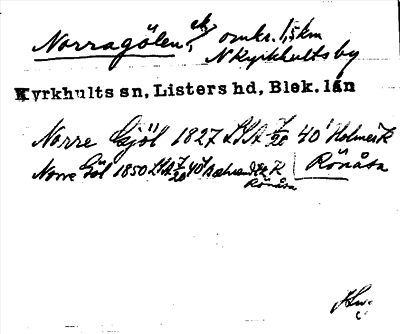 Norragölen, ek, omkr. 1,5 km
N Kyrkhults by
Kyrkhults sn, Listers hd, Blek. län
Norre Gjöl 1827 LSA 7/20 40' Holmer K
Norre Göl 1850 LSA 7/20 40' K Rönåsa
Rönåsa
Hw.